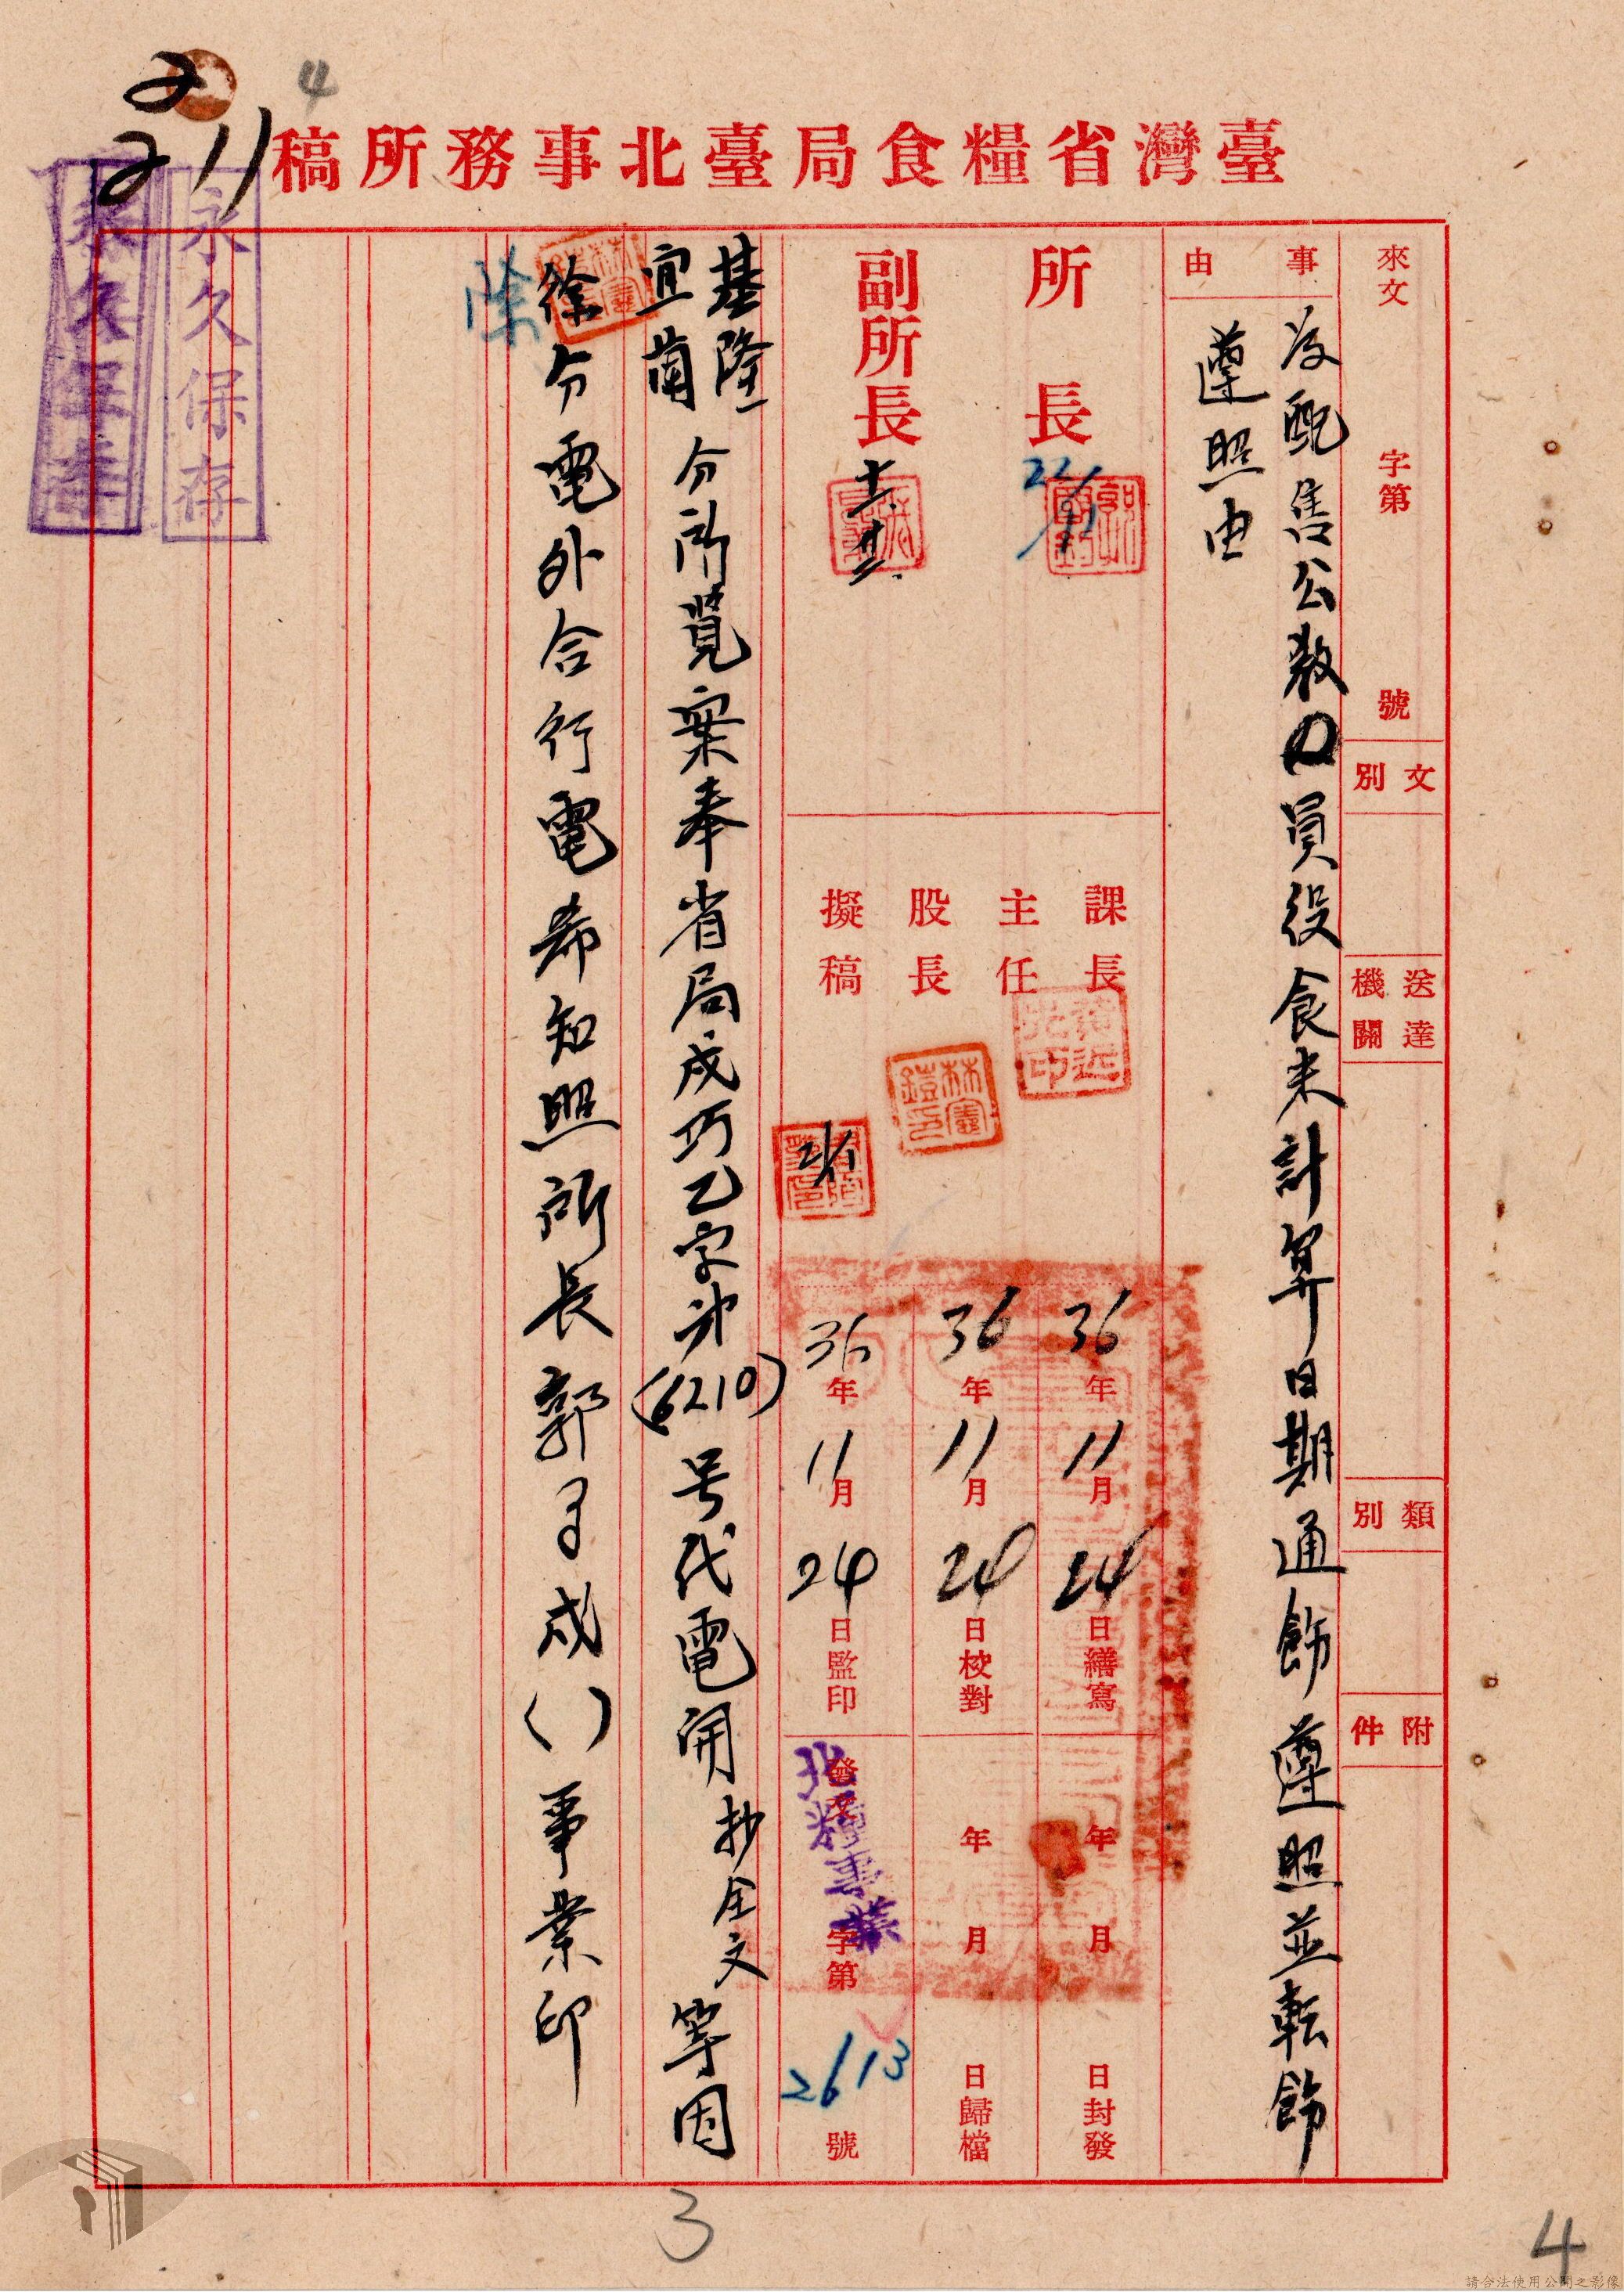 4
22
11
臺灣省糧食局臺北事務所稿
永久保存
來文 字第 號
文別
送達機關
類別
附件
事由
為配售公教員役食米計算日期通飭遵照並転飭
遵照由
所長
22/11
副所長
十一 廿二
課長
主任
股長
擬稿
林憲鎧印
21/11
36年11月24日繕寫
36年11月24日校對
36年11月24日監印
年月日封發
年月日歸檔
發文 字第2613號
北糧事業
基隆
宜蘭
分所覽案奉省局戌巧乙字第(6210)号代電開抄全文等因
除
分電外合行電希知照所長郭 戌( )事業印
3
4
請合法使用公開之影像